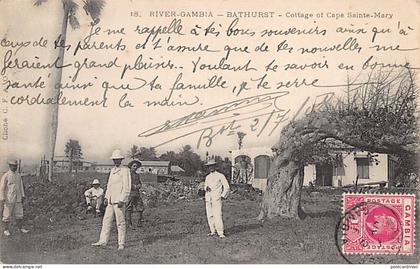 18. RIVER-GAMBIA — BATHURST - Cottage of Cape Sainte-Mary
Je me rappelle à tes bons souvenirs ainsi qu'à
ceux de tes parents et t'assure que de tes nouvelles me
feraient grand plaisir. Voulant te savoir en bonne
santé ainsi que ta famille, je te serre
cordialement la main.
2/7/
Cliché C. F. A.
POSTAGE POSTAGE
GAMBIA
postcardman